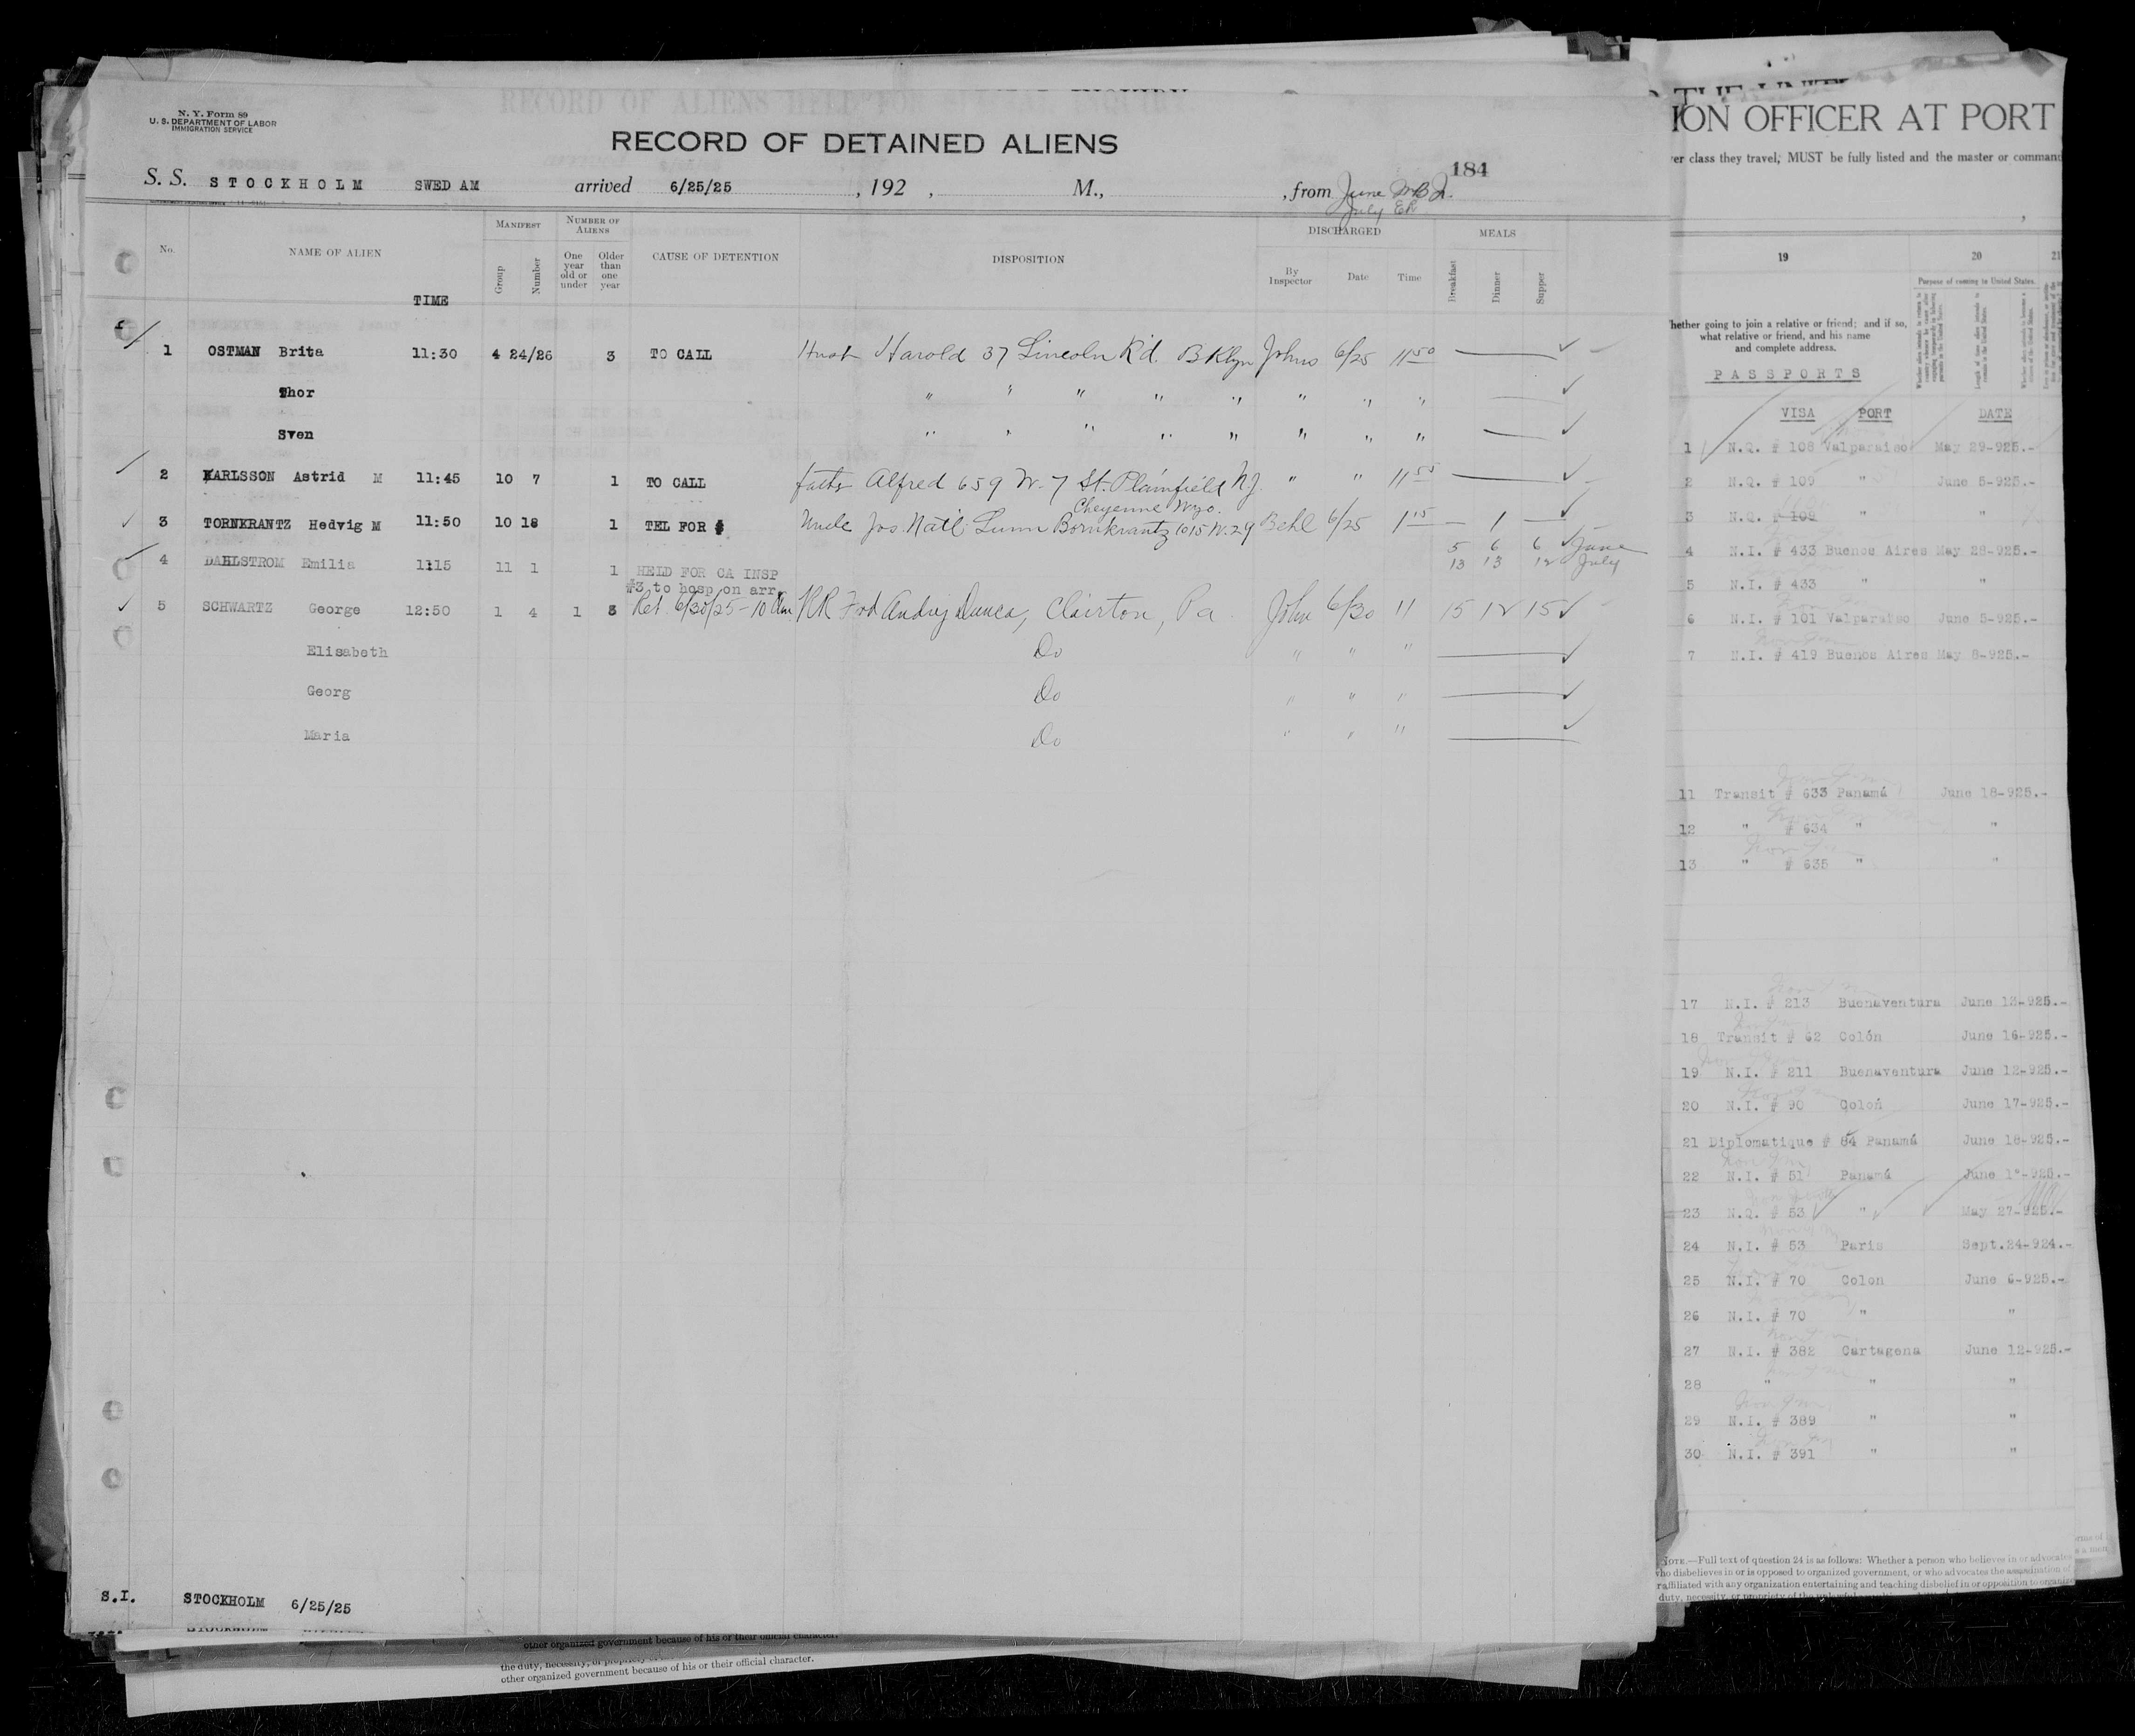 N. Y. Form 89
U. S. DEPARTMENT OF LABOR
IMMIGRATION SERVICE
RECORD OF DETAINED ALIENS
184
S. S. STOCKHOLM SWED AM arrived 6/25/25 , 192 , M., , from June
July
No. NAME OF ALIEN TIME MANIFEST Group Number NUMBER OF ALIENS One year old or under Older than one year CAUSE OF DETENTION DISPOSITION DISCHARGED By Inspector Date Time MEALS Breakfast Dinner Supper
1 OSTMAN Brita 11:30 4 24/26 3 TO CALL Husb Harold 37 Lincoln Rd. BKlyn Johns 6/25 11 50
Thor " " " " " " " "
Sven " " " " " " " "
2 KARLSSON Astrid M 11:45 10 7 1 TO CALL Alfred 659 W. 7 St. Plainfield N.J. " " 11 55
Cheyenne Wyo.
3 TORNKRANTZ Hedvig M 11:50 10 18 1 TEL FOR $ Uncle Jos. Natl. 1015 W. 29 6/25 1 15 1
5 6 6 June
4 DAHLSTROM Emilia 1115 11 1 1 HELD FOR CA INSP 13 13 12 July
#3 to hosp on arr.
5 SCHWARTZ George 12:50 1 4 1 3 Ret. 6/30/25 - 10 am Clairton, Pa. John 6/30 11 15 12 15
Elisabeth Do " " "
Georg Do " " "
Maria Do " " "
S.I. STOCKHOLM 6/25/25
other organized government because of his or their official character.
other organized government because of his or their official character.
ION OFFICER AT PORT
er class they travel, MUST be fully listed and the master or command
19 20 21
Purpose of coming to United States.
hether going to join a relative or friend; and if so,
what relative or friend, and his name
and complete address.
PASSPORTS
VISA PORT DATE
1 N.Q. # 108 Valparaiso May 29-925.-
2 N.Q. # 109 " June 5-925.-
3 N.Q. # 108 " "
4 N.I. # 433 Buenos Aires May 28-925.-
5 N.I. # 433 " "
6 N.I. # 101 Valparaiso June 5-925.-
7 N.I. # 419 Buenos Aires May 8-925.-
11 Transit # 633 Panamá June 18-925.-
12 " # 634 " "
13 " # 635 " "
17 N.I. # 213 Buenaventura June 13-925.-
18 Transit # 62 Colón June 16-925.-
19 N.I. # 211 Buenaventura June 12-925.-
20 N.I. # 90 Colón June 17-925.-
21 Diplomatique # 84 Panamá June 18-925.-
22 N.I. # 51 Panamá June 1°-925.-
23 N.Q. # 53 " May 27-925.-
24 N.I. # 53 Paris Sept.24-924.-
25 N.I. # 70 Colon June 6-925.-
26 N.I. # 70 " "
27 N.I. # 382 Cartagena June 12-925.-
28 " " "
29 N.I. # 389 " "
30 N.I. # 391 " "
NOTE.—Full text of question 24 is as follows: Whether a person who believes in or advocates
who disbelieves in or is opposed to organized government, or who advocates the assassination of
affiliated with any organization entertaining and teaching disbelief in or opposition to organize
duty, necessity, or propriety of the